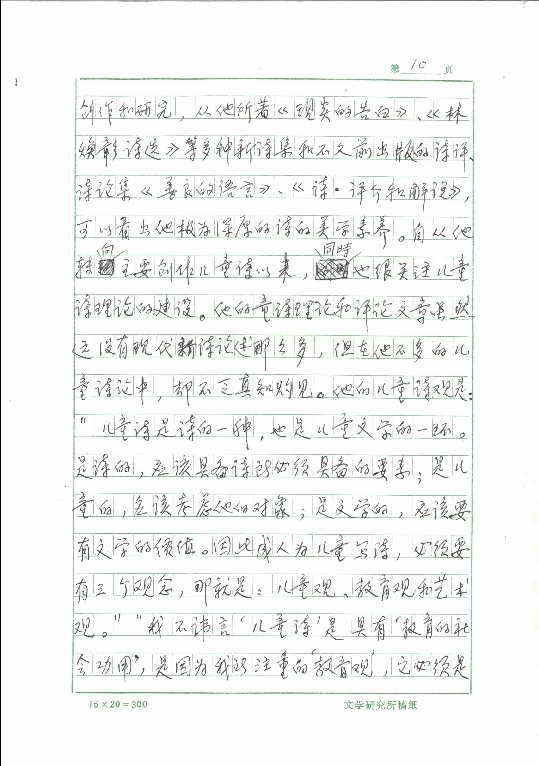 第 10 页
创作和研究，从他所著《现实的告白》、《林
焕彰诗选》等多种新诗集和不久前出版的诗评、
诗论集《善良的语言》、《诗·评介和解说》，
可以看出他极为深厚的诗的美学素养。自从他
转向主要创作儿童诗以来，同時他很关注儿童
诗理论的建设。他的童诗理论和评论文章虽然
还没有现代新诗论述那么多，但在他不多的儿
童诗论中，却不乏真知灼见。他的儿童诗观是：
"儿童诗是诗的一种，也是儿童文学的一环。
是诗的，应该具备诗所必须具备的要素；是儿
童的，应该考虑他们的对象；是文学的，应该要
有文学的价值。因此成人为儿童写诗，必须要
有三个观念，那就是：儿童观、教育观和艺术
观。""我不讳言'儿童诗'是具有'教育的社
会功用'，是因为我所注重的'教育观'，它必须是
15×20=300 文学研究所稿纸